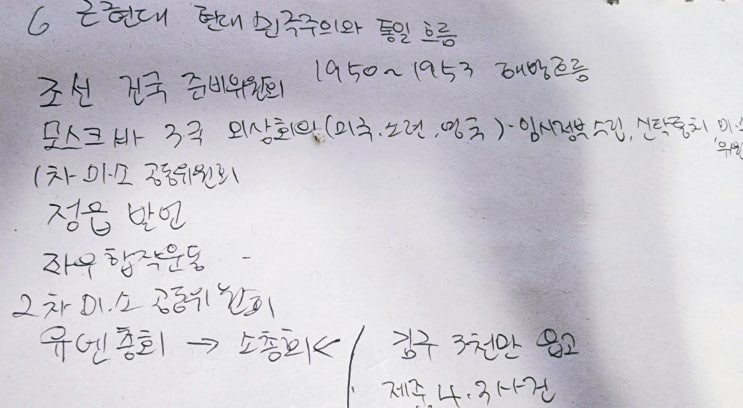 6 근현대 현대 민주주의와 통일 흐름
조선 건국 준비위원회 1950~1953 해방흐름
모스크바 3국 외상회의(미국,소련,영국)-임시정부수립, 신탁통치 미소
위원
1차 미·소 공동위원회
정읍 발언
좌우 합작운동 -
2차 미·소 공동위원회
유엔총회 → 소총회< / 김구 3천만 읍고
제주 4.3사건